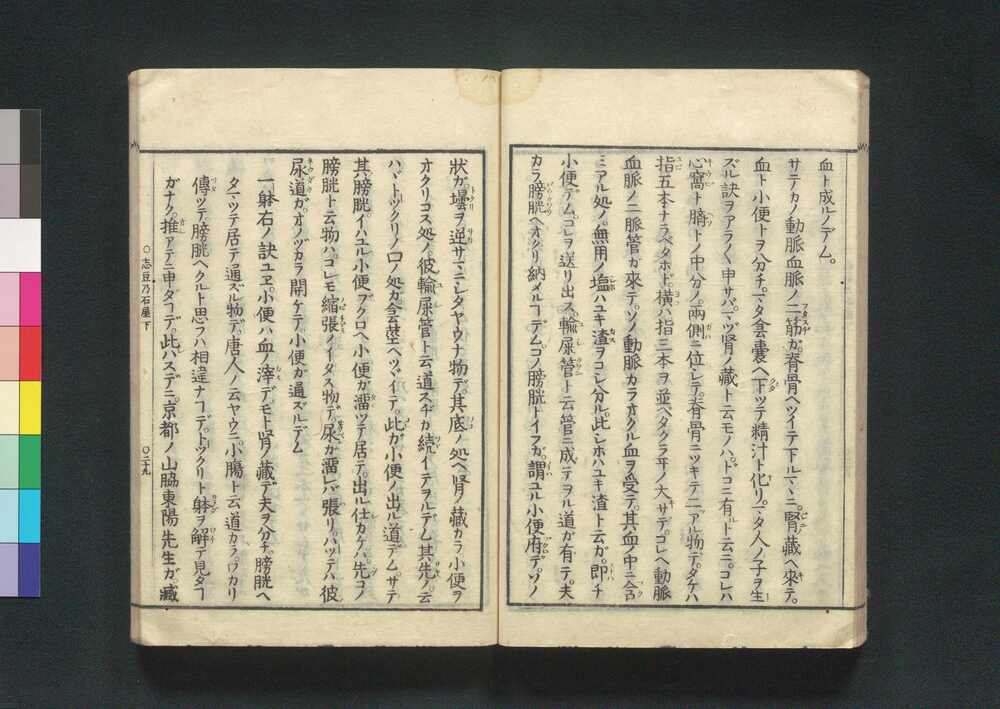 血ト成ルノデム。
サテカノ動脈血脈ノ二筋ガ。脊骨ヘツイテ下ルマヽニ。腎ノ藏ヘ來テ。
血ト小便トヲ分チ。マタ陰嚢ヘ下ツテ精汁ト化リ。マタ人ノ子ヲ生
ズル訣ヲアラ〳〵申サバ。マヅ腎ノ藏ト云モノハ。ドコニ有ルト云ニ。コレハ
心窩ト臍トノ中分ノ。兩側ニ位シテ。脊骨ニツキテ二ツアル物デ。タケハ
指五本ナラベタホド。横ハ指三本ヲ並ベタクラヰノ大サデ。コレヘ動脈
血脈ノ二脈管ガ來テ。ソノ動脈カラオクル血ヲ受テ。其血ノ中ニ含
ミアル処ノ。無用ノ塩ハユキ渣ヲコシ分ル。此シホハユキ渣ト云ガ。即チ
小便デム。コレヲ送リ出ス。輸尿管ト云管ニ成テヲル道ガ有テ。夫
カラ膀胱ヘオクリ納メルコデム。コノ膀胱トイフガ。謂ユル小便府デ。ソノ
状ガ壜ヲ逆サマニシタヤウナ物デ。其底ノ処ヘ腎ノ藏カラ小便ヲ
オクリコス処ノ。彼輸尿管ト云道スヂガ続イテヲルデム其先ノ。云
ハヾトツクリノ口ノ処ガ。会莖ヘツヾイテ。此ガ小便ノ出ル道デム。サテ
其膀胱。イハユル小便ブクロヘ小便ガ溜ツテ居テ。出ル仕カケハ。先コノ
膀胱ト云物ハ。コレモ縮張ノイタス物デ。尿ガ溜レバ張リ。ハツテハ彼
尿道ガオノヅカラ開ケテ。小便ガ通ズルデム
一躰右ノ訣ユヱ。小便ハ血ノ滓デ。モト腎ノ藏デ夫ヲ分チ。膀胱ヘ
タマツテ居テ通ズル物デ。唐人ノ云ヤウニ。小腸ト云道カラ。ワカリ
傳ツテ膀胱ヘクルト思フハ相違ナコデ。トツクリト躰ヲ解デ見タコ
ガナク。推アテニ申ダコデ。此ハスデニ。京都ノ山脇東陽先生ガ。藏
○志豆乃石屋下
○二十九